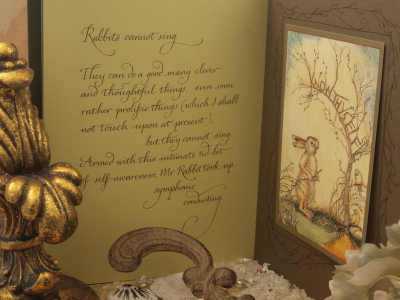 Rabbits cannot sing
They can do a good many clever
and thoughtful things, even some
rather prolific things (which I shall
not touch upon at present),
but they cannot sing
Armed with this intimate tid-bit
of self-awareness, Mr Rabbit took up
symphonic
conducting